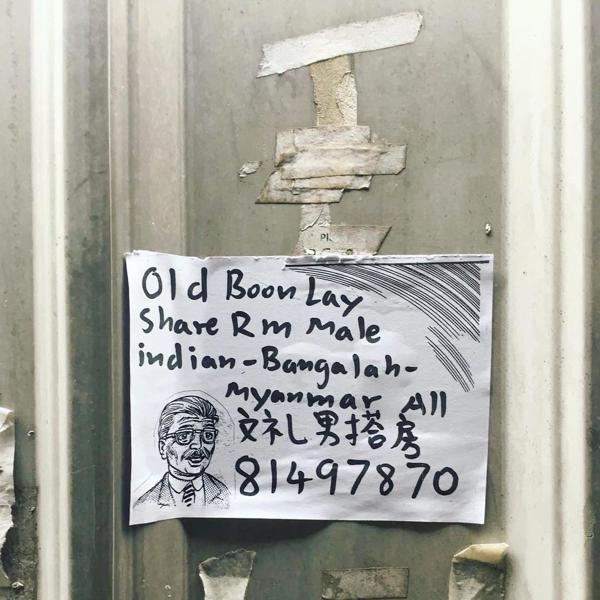 Old Boon Lay
Share Rm Male
indian-Bangalah-
Myanmar All
文礼男搭房
81497870